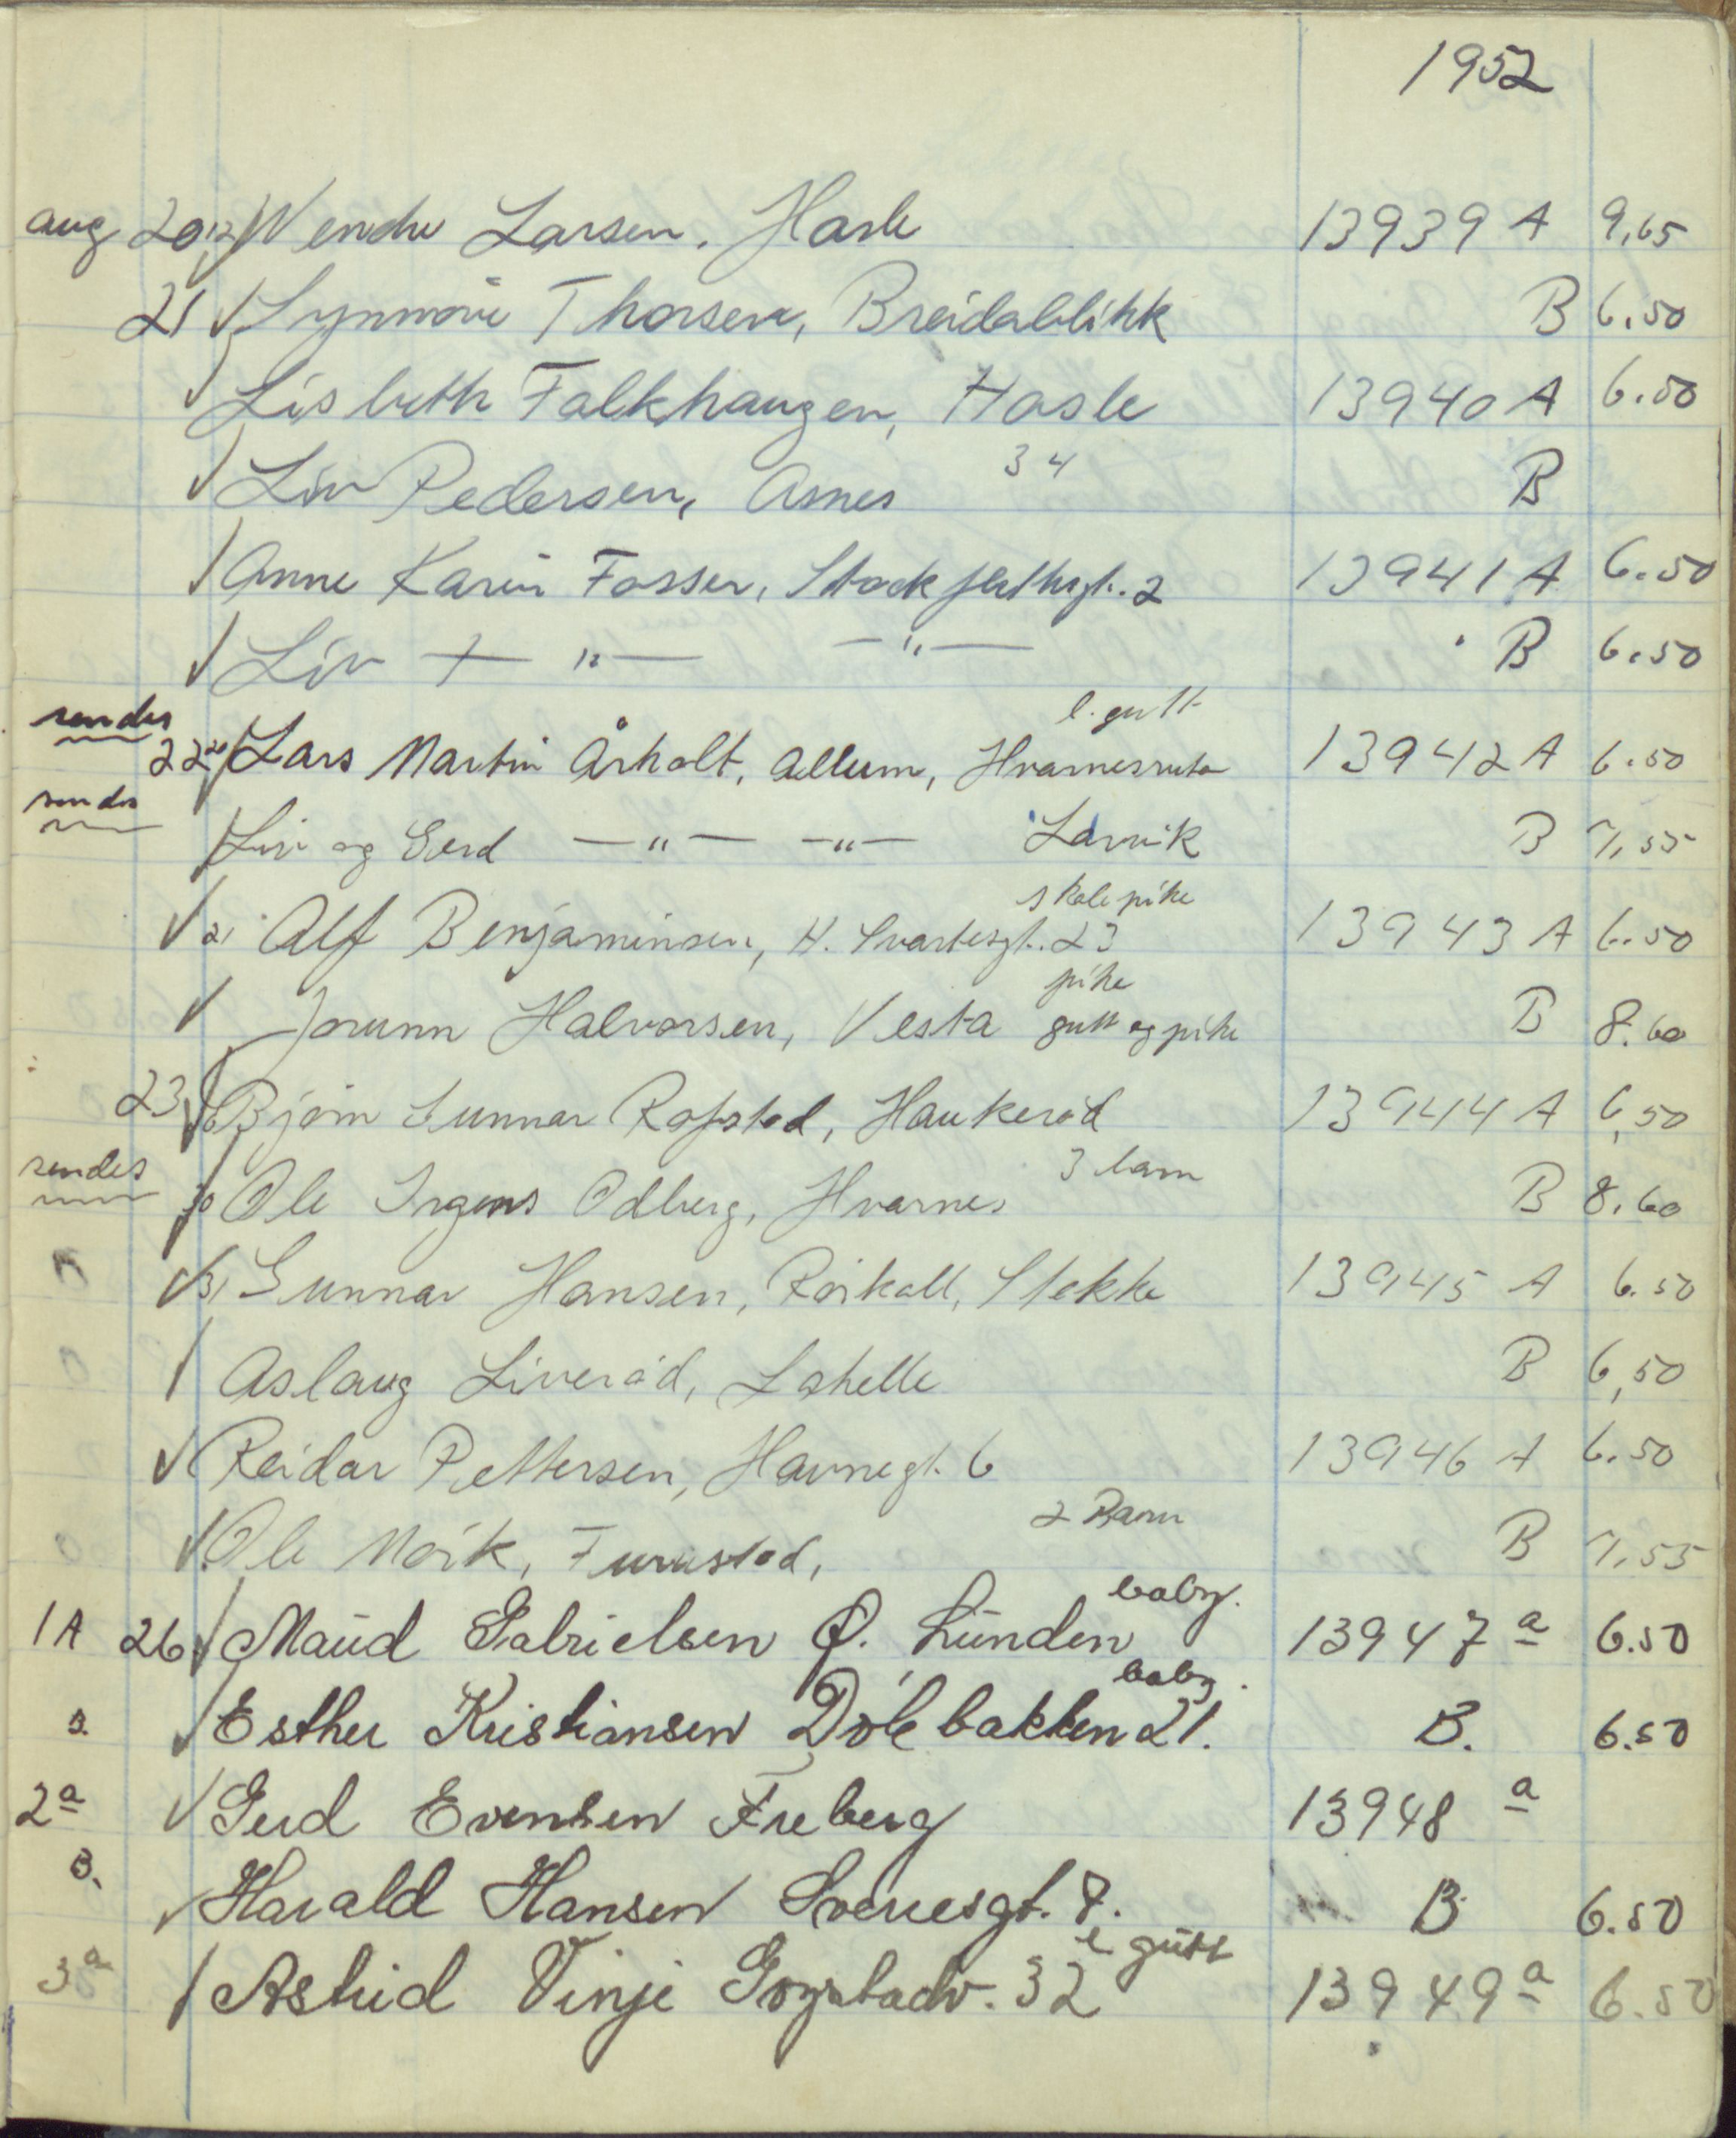 1952
aug 20 12 Wenche Larsen. Hasle 13939 A 9,65
21 Synnøve Thorsen, Breidablikk B 6.50
Lisbeth Falkhaugen, Hasle 13940 A 6.50
34
Liv Pedersen, Asnes B
Anne Karin Fosser, Stockflethsgt. 2 13941 A 6.50
Liv — " — — " — B 6.50
sendes l. gutt
22 Lars Martin Årholt, Allum, Hvarnesruta 13942 A 6.50
sendes Liv og Gerd — " — — " — Larvik B 7,55
skole pike
21 Alf Benjaminsen, H. Svartesgt. 23 13943 A 6.50
pike
Jorunn Halvorsen, Vesta gutt og pike B 8.60
23 Bjørn Gunnar Rofstad, Haukerød 13944 A 6,50
sendes 3 barn
30 Ole Irgens Odberg, Hvarnes B 8.60
31 Gunnar Hansen, Rørkoll, Stokke 13945 A 6.50
Aslaug Liverød, Lahelle B 6,50
Reidar Pettersen, Havnegt. 6 13946 A 6.50
2 Barn
Ole Mørk, Furustad, B 7,55
baby.
1A 26 Maud Gabrielsen Ø. Lunden 13947 a 6.50
baby.
B. Esther Kristiansen Dølebakken 21. B. 6.50
2a Gerd Evensen Freberg 13948 a
B. Harald Hansen Sverresgt. 7. B 6.50
l gutt
3a Astrid Vinje Gogstadv. 32 13949 a 6.50